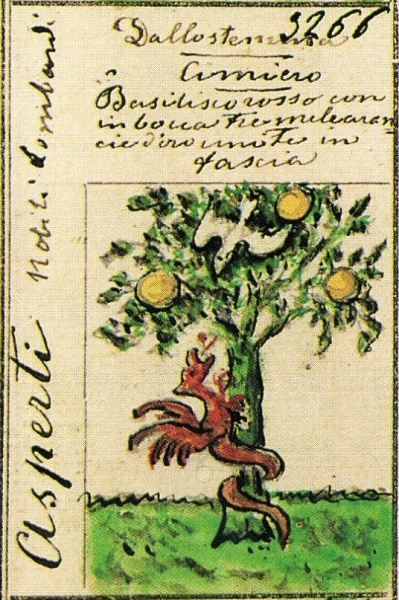 3266
Dallo stemma
Cimiero
Basilisco rosso con
in bocca tre melearan
cie d'oro unite in
fascia
Asperti Nobili Lombardi